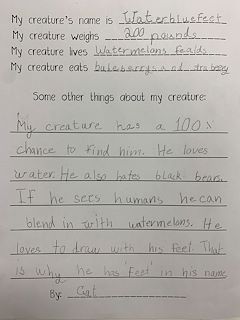 My creature's name is Waterbluefeet
My creature weighs 200 pounds
My creature lives Watermelons fealds
My creature eats
Some other things about my creature:
My creature has a 100%
chance to find him. He loves
water. He also hates black bears.
If he sees humans he can
blend in with watermelons. He
loves to draw with his feet. That
is why he has "feet" in his name
By: